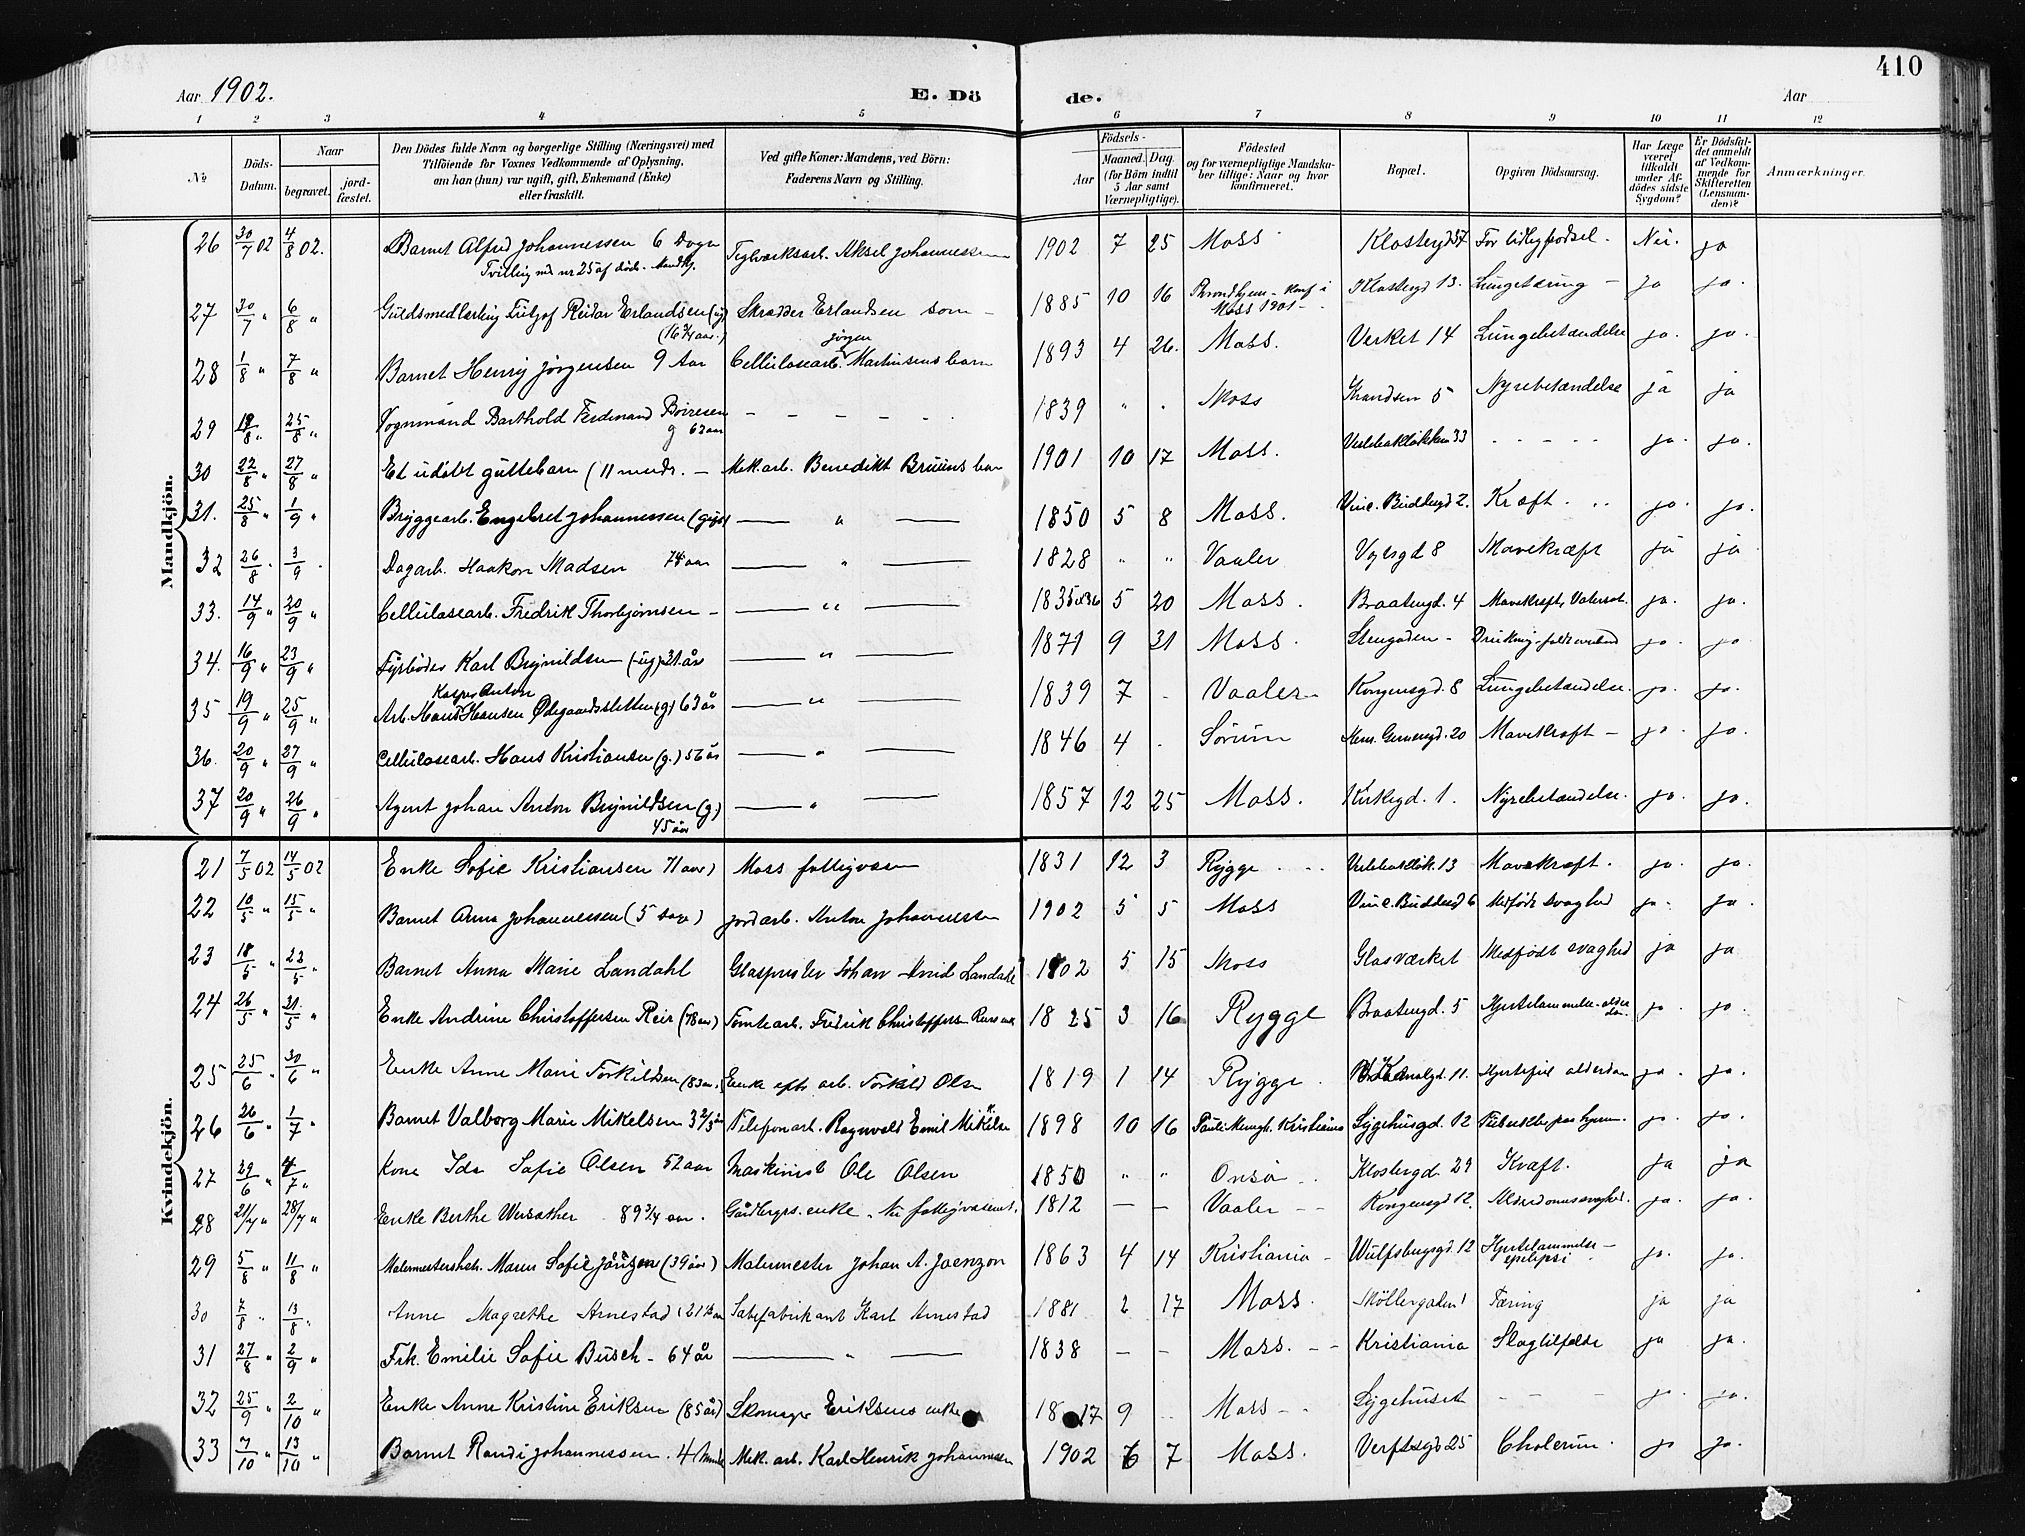 410
Aar 1902.
E. Dö de.
Aar
1 2 3 4 5 6 7 8 9 10 11 12
No
Döds-Datum.
Naar
begravet.
jord-fæstet.
Den Dödes fulde Navn og borgerlige Stilling (Næringsvei) med
Tilföiende for Voxnes Vedkommende af Oplysning,
om han (hun) var ugift, gift, Enkemand (Enke)
eller fraskilt.
Ved gifte Koner: Mandens, ved Börn:
Faderens Navn og Stilling.
Födsels-
Aar
Maaned. Dag.
(for Börn indtil 5 Aar samt Værnepligtige).
Födested
og for værnepligtige Mandska-
ber tillige: Naar og hvor
konfirmeret.
Bopæl.
Opgiven Dödsaarsag.
Har Læge været tilkaldt under Af-dödes sidste Sygdom?
Er Dödsfal-det anmeldt af Vedkom-mende for Skifteretten (Lensman-den)?
Anmærkninger.
Mandkjön.
26 30/7 02 4/8 02. Barnet Alfred Johannessen 6 Dage Teglværksarb. Aksel Johannessen 1902 7 25 Moss Klostergd 37 For tidlig födsel. Nei. ja
Tvilling med nr 25 af döde. Mandkj.
27 30/7 " 6/8 " Guldsmedlærling Fritjof Reidar Erlandsen (ug) Skrædder Erlandsen sön 1885 10 16 Trondhjem - konf i Moss 1901 Klostergd 13. Lungetæring ja ja.
(16 3/4 aar.)
28 1/8 " 7/8 " Barnet Henry Jörgensen 9 Aar Cellulosearb. Jörgen Martinsens barn 1893 4 26. Moss. Verket 14 Lungebetændelse ja. ja.
29 19/8 " 25/8 " Vognmand Barthold Ferdinand Boiresen g 63 aar - - - - 1839 " " Moss Krandsen 5 Nyrebetændelse ja ja
30 22/8 " 27/8 " Et udöbt guttebarn (11 mndr. - Mek. arb. Benedikt Bruuns barn 1901 10 17 Moss. Verlebakløkken 33 - - - - ja. ja.
31. 25/8 " 1/9 " Bryggearb. Engebret Johannessen (gift " 1850 5 8 Moss. Vinc. Buddesgd 2. Kræft. ja. ja.
32 26/8 . 3/9 . Dagarb. Haakon Madsen 74 aar " 1828 " " Vaaler Vogtsgd 8 Mavekræft ja ja
33. 14/9 " 20/9 " Cellulosearb. Fredrik Thorbjørnsen - " 1835 5 20 Moss. Braatengd. 4 Mavekræft, ja. ja.
34. 16/9 " 23/9 " Fyrböder Karl Brynildsen (ug) 31 år " 1871 9 21 Moss. Stengaden - Drukning - faldt overbord ja. ja
35 19/9 " 25/9 " Arb. Hans Kasper Anton Hansen Ødegaardsletten (g) 63 år " 1839 7 - Vaaler Kongensgd. 8 Lungebetændelse. ja. ja.
36. 20/9 " 27/9 " Cellulosearb. Hans Kristiansen (g.) 56 år " 1846 4 . Sörum Hen. Gernersgd. 20 Mavekræft - ja. ja.
37 20/9 " 26/9 " Agent Johan Anton Brynildsen (g) " 1857 12 25 Moss. Kirkegd. 1. Nyrebetændelse. ja. ja.
45 år
Kvindekjön.
21 7/5 02 14/5 02 Enke Sofie Kristiansen 71 aar) Moss fattigvæsen 1831 12 3 Rygge Verlebakløk. 13 Mavekræft. ja. ja.
22 10/5 " 15/5 " Barnet Anna Johannessen (5 dage) Jordarb. Anton Johannessen 1902 5 5 Moss Vinc. Buddesgd 6 Medfödt svaghed ja. ja.
23 18/5 " 22/5 " Barnet Anna Marie Landahl Glaspuster Johan Arvid Landahl 1902 5 15 Moss Glasværket Medfödt svaghed ja ja
24 26/5 " 31/5 " Enke Andrine Christoffersen Reir (78 aar) Tomtearb. Fredrik Christoffersen Reirs enke 1825 3 16 Rygge Braatengd. 5 Hjertelammelse - alderdom ja. ja.
25 25/6 " 30/6 " Enke Anne Marie Torkildsen (83 aar) Enke efter arb. Torkild Olsen 1819 1 14 Rygge. Kanalgd. 11. Hjertefeil alderdom ja. ja.
26 26/6 " 1/7 " Barnet Valborg Marie Mikelsen 3 2/3 år Telefonarb. Ragnvald Emil Mikelsen 1898 10 16 Pauli Menigh. Kristiania Sygehusgd. 12 ja. ja.
27 29/6 " 4/7 " Kone Ida Sofie Olsen 52 aar Maskinist Ole Olsen 1850 " " Onsö Klostergd. 29 Kræft. ja ja
28 21/7 " 28/7 " Enke Berthe 89 3/4 aar. enke. Nu fattigvæsenet. 1812 - - Vaaler - Kongensgd 12. Alderdomssvaghed. ja. ja.
29 5/8 " 11/8 " Malermesterhst. Maren Sofie Jönzon (39 aar) Malermester Johan A. Jaenzon 1863 4 14 Kristiania - Wulfsbergsgd. 12 Hjertelammelse - epilepsi ja. ja.
30 7/8 " 13/8 " Anne Magrethe Arnestad (21 1/2 aar Sæbefabrikant Karl Arnestad 1881 2 17 Moss. Möllergaden 1 Tæring ja ja
31 27/8 " 2/9 " Frk. Emilie Sofie Busch - 64 år " 1838 - - Moss. - - Kristiania Slagtilfælde ja ja.
32 25/9 " 2/10 " Enke Anne Kristine Eriksen (85 år) Skomager Eriksens enke 1817 9 Moss - Sygehuset - - - ja. ja.
33 7/10 " 13/10 " Barnet Randi Johannessen. 4 Mndr Mek. arb. Karl Henrik Johannessen 1902 6 7 Moss. Verftsgd 25 Cholerine. ja ja.